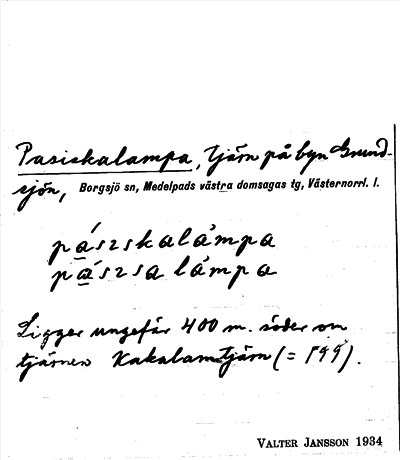 Pasiskalampa, tjärn på byn Grund-
sjön, Borgsjö sn, Medelpads västra domsagas tg, Västernorrl. l.
pásıskalàmpa
pásısa làmpa
Ligger ungefär 400 m. söder om
tjärnen Kakalamtjärn (= 199).
VALTER JANSSON 1934